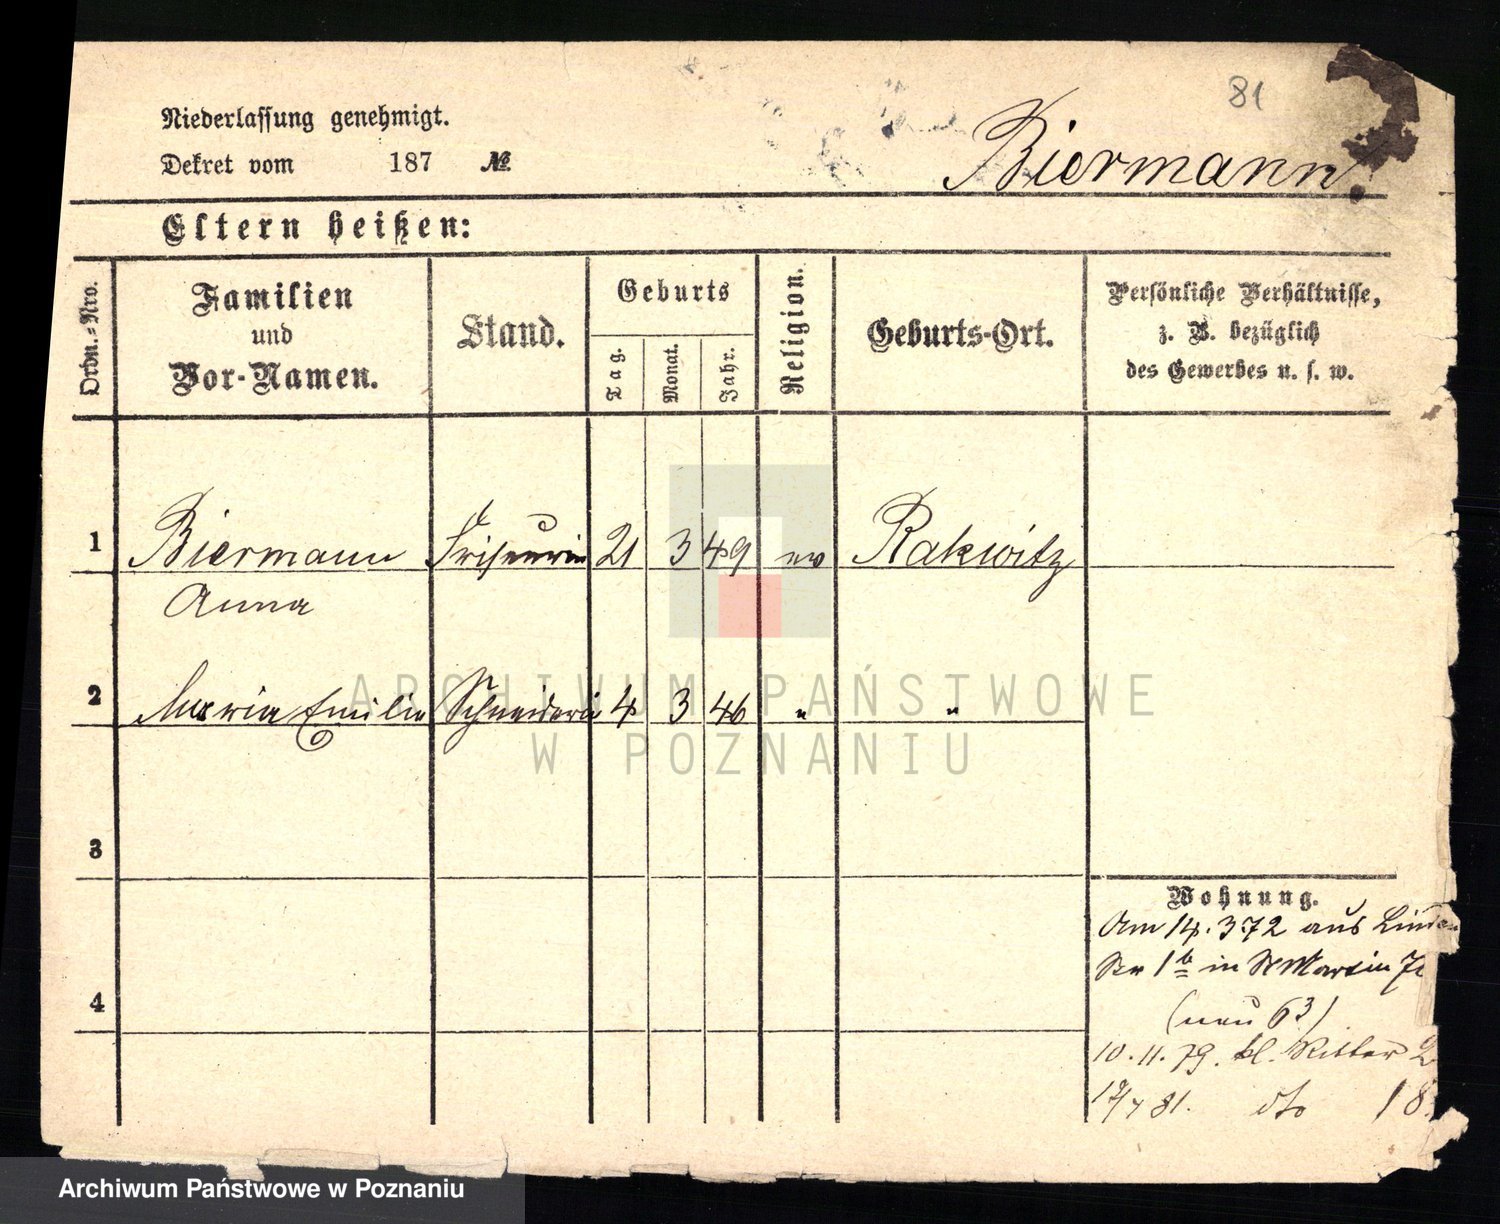 81
Niederlassung genehmigt.
Dekret vom 187 №
Biermann.
Eltern heißen:
Ordn.-Nro.
Familien
und
Vor-Namen.
Stand.
Geburts
Tag.
Monat.
Jahr.
Religion.
Geburts-Ort.
Persönliche Verhältnisse,
z. B. bezüglich
des Gewerbes u. s. w.
1 Biermann Friseurin 21 3 49 ev Rakwitz
Anna
2 Maria Emilie Schneiderin 4 3 46 " "
3
4
Wohnung.
Am 14.3 72 aus
1 b in St Martin
(neu 63)
10.11.79. kl. Ritter
81. dto 18
ARCHIWUM PAŃSTWOWE
W POZNANIU
Archiwum Państwowe w Poznaniu